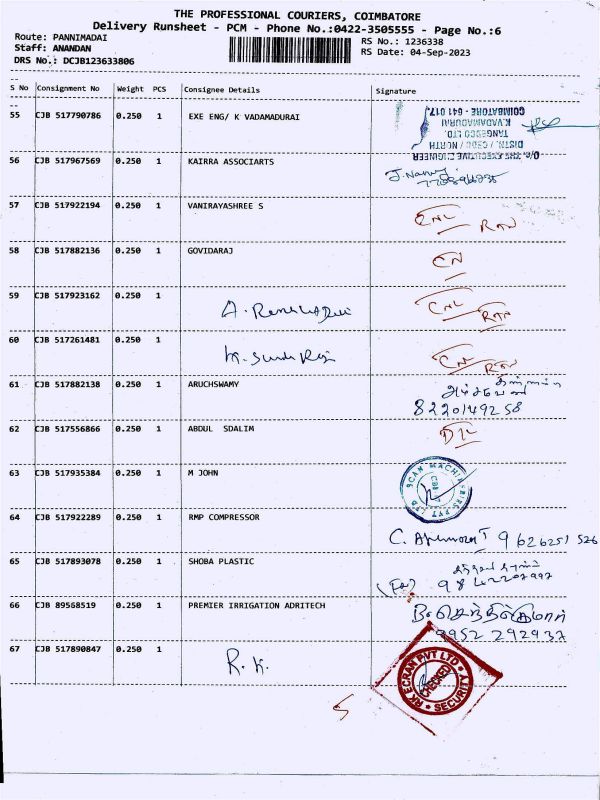 THE PROFESSIONAL COURIERS, COIMBATORE
Delivery Runsheet - PCM - Phone No.:0422-3505555 - Page No.:6
Route: PANNIMADAI
Staff: ANANDAN
DRS No.: DCJB123633806
RS No.: 1236338
RS Date: 04-Sep-2023
S No Consignment No Weight PCS Consignee Details Signature
55 CJB 517790786 0.250 1 EXE ENG/ K VADAMADURAI
O/o THE EXECUTIVE ENGINEER
DISTN. / CEDC / NORTH
TANGEDCO LTD.
K.VADAMADURAI
COIMBATORE - 641 017.
56 CJB 517967569 0.250 1 KAIRRA ASSOCIARTS
57 CJB 517922194 0.250 1 VANIRAYASHREE S CNL RTN
58 CJB 517882136 0.250 1 GOVIDARAJ CN
59 CJB 517923162 0.250 1 CNL RTN
60 CJB 517261481 0.250 1 CN RTN
61 CJB 517882138 0.250 1 ARUCHSWAMY
8220149258
62 CJB 517556866 0.250 1 ABDUL SDALIM D/L
63 CJB 517935384 0.250 1 M JOHN
64 CJB 517922289 0.250 1 RMP COMPRESSOR 9626251526
65 CJB 517893078 0.250 1 SHOBA PLASTIC
66 CJB 89568519 0.250 1 PREMIER IRRIGATION ADRITECH B. செந்தில்குமார்
9952 292937
67 CJB 517890847 0.250 1 R.K.
ECRAN PVT LTD
CHECKED
SECURITY
5